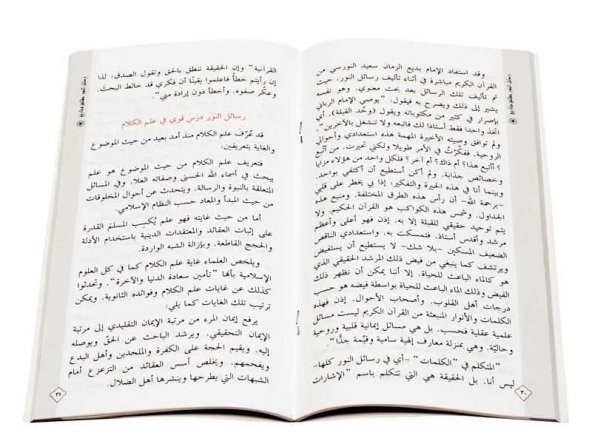 وقد استفاد الإمام بديع الزمان سعيد النورسي من
القرآن الكريم مباشرة في أثناء تأليف رسائل النور، حيث
تم تأليف تلك الرسائل بعد بحث معنوي. وهو نفسه
يشير إلى ذلك ويصرح به فيقول: "يوصي الإمام الرباني
بإصرار في كثير من مكتوباته ويقول (وحّد القبلة). أي
اتخذ واحدا فقط أستاذا لك فاتبعه ولا تنشغل بالآخرين".
ولم توافق وصيته الأخيرة المهمة هذه استعدادي وأحوالي
الروحية. ففكّرتُ في الأمر طويلا ولكني تحيرت. من أتّبع
؟ أأتبع هذا؟ أم ذاك؟ أم آخر؟ فلكل واحد من هؤلاء مزايا
وخصائص جذابة. ولم أكن أستطيع أن أكتفي بواحد.
وبينما أنا في هذه الحيرة والتفكير، إذا بي يخطر على قلبي
-برحمة الله- أن رأس هذه الطرق المختلفة. ومنبع هذه
الجداول. وشمس هذه الكواكب هو القرآن الحكيم. ولا
يتم توحيد حقيقي للقبلة إلا به. إذن فهو أعلى وأعظم
مرشد وأقدس أستاذ. فتمسكت به. واستعدادي الناقص
الضعيف المسكين -بلا شك- لا يستطيع أن يستفيض
ويرتشف كما ينبغي من فيض ذلك المرشد الحقيقي الذي
هو كالماء الباعث للحياة. إلا أننا يمكن أن نظهر ذلك
الفيض وذلك الماء الباعث للحياة بواسطة فيضه هو حسب
درجات أهل القلوب. وأصحاب الأحوال. إذن فهذه
الكلمات والأنوار المنبعثة من القرآن الكريم ليست مسائل
علمية عقلية فحسب. بل هي مسائل إيمانية قلبية وروحية
وحالية. وهي بمنزلة معارف إلهية سامية وقيّمة جدًّا".
"المتكلم في "الكلمات" -أي في رسائل النور كلها-
ليس أنا. بل الحقيقة هي التي تتكلم باسم "الإشارات
٣٠
القرآنية" وإن الحقيقة تنطق بالحق وتقول الصدق؛ لذا
إن رأيتم خطأً فاعلموا يقينًا أن فكري قد خالط البحث.
وعكّر صفوه. وأخطأ دون إرادة مني".
رسائل النور درس قوي في علم الكلام
قد عرّف علم الكلام منذ أمد بعيد من حيث الموضوع
والغاية بتعريفين:
فتعريف علم الكلام من حيث الموضوع هو علم
يبحث في أسماء الله الحسنى وصفاته العلا. وفي المسائل
المتعلقة بالنبوة والرسالة. ويتحدث عن أحوال المخلوقات
من حيث المبدأ والمعاد حسب النظام الإسلامي.
أما من حيث غايته فهو علم يُكسب المسلم القدرة
على إثبات العقائد والمعتقدات الدينية باستخدام الأدلة
والحجج القاطعة. وبإزالة الشبه الواردة.
ويلخص العلماء غاية علم الكلام كما في كل العلوم
الإسلامية بأنها "تأمين سعادة الدنيا والآخرة". وتحدثوا
كذلك عن غايات علم الكلام وفوائده الثانوية. ويمكن
ترتيب تلك الغايات كما يلي:
يرفع إيمان المرء من مرتبة الإيمان التقليدي إلى مرتبة
الإيمان التحقيقي. ويرشد الباحث عن الحق ويوصله
إليه. ويقيم الحجة على الكفرة والملحدين وأهل البدع
ويفحمهم. ويخلص أسس العقائد من التزعزع أمام
الشبهات التي يطرحها وينشرها أهل الضلال.
٣١